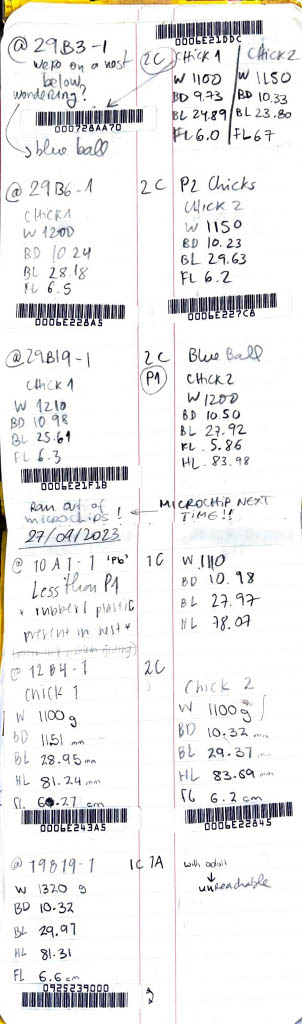 0006E21DDC
@ 29B3-1 2C CHICK 1 CHICK 2
were on a nest W 1100 W 1150
below BD 9.73 BD 10.33
wondering? BL 24.89 BL 23.80
FL 6.0 FL 6.7
000728AA70
blue ball
@ 29B6-1 2C P2 Chicks
CHICK 1 CHICK 2
W 1200 W 1150
BD 10.24 BD 10.23
BL 28.18 BL 29.63
FL 6.5 FL 6.2
0006E228A5 0006E227C8
@ 29B19-1 2C Blue Ball
CHICK 1 P1 CHICK 2
W 1210 W 1200
BD 10.98 BD 10.50
BL 25.61 BL 27.92
FL 6.3 FL 5.86
HL 83.98
0006E21F1B
Ran out of microchips! ← MICROCHIP NEXT TIME!!
27/09/2023
@ 10A1-1 'Pb' 1C W 1110
Less than P1 BD 10.98
* rubber / plastic BL 27.97
present in nest * HL 78.07
@ 12B4-1 2C
Chick 1 Chick 2
W 1100 g W 1100 g
BD 11.51 mm BD 10.32 mm
BL 28.95 mm BL 29.37 mm
HL 81.24 mm HL 83.69 mm
FL 6.27 cm FL 6.2 cm
0006E243A5 0006E22845
@ 19B19-1 1C 1A with adult
W 1320 g ↓
BD 10.32 unreachable
BL 29.97
HL 81.31
FL 6.6 cm
0925239000